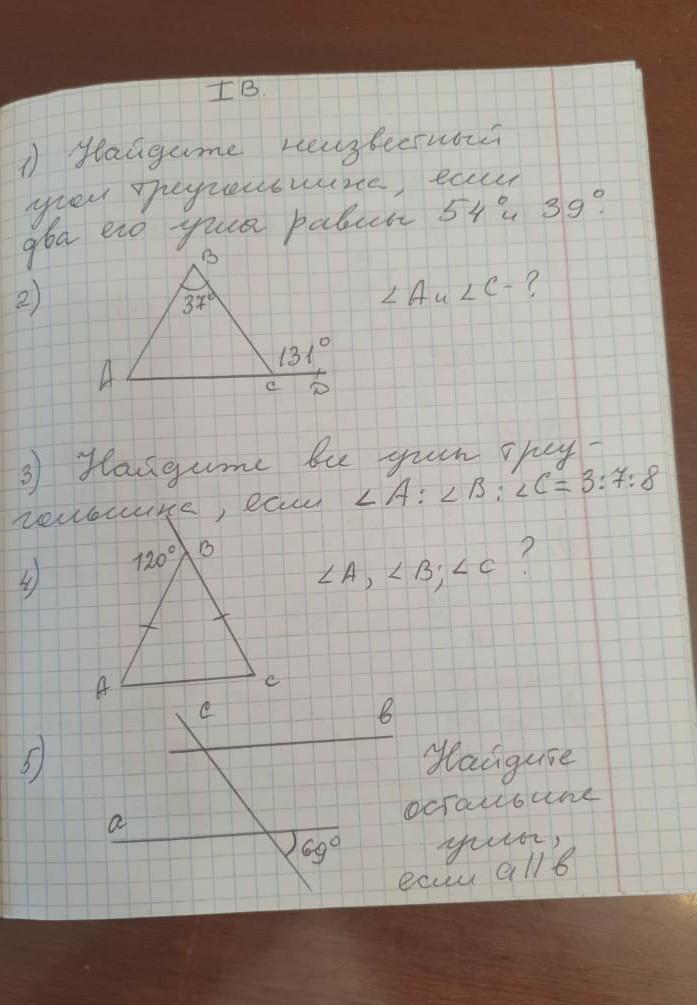 I В.
1) Найдите неизвестный
угол треугольника, если
два его угла равны 54° и 39°.
2)
B
37°
∠A и ∠C - ?
A
131°
C
D
3) Найдите все углы треу-
гольника, если ∠A : ∠B : ∠C = 3:7:8
4)
120°
B
∠A, ∠B; ∠C ?
A
C
5)
c
b
a
69°
Найдите
остальные
углы,
если a || b